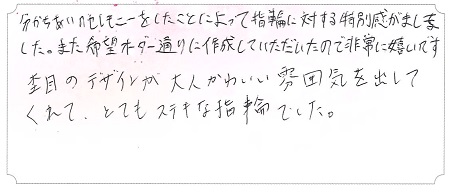 分かちあいのセレモニーをしたことによって指輪に対する特別感がましま
した。また希望オーダー通りに作成していただいたので非常に嬉しいです
杢目のデザインが大人かわいい雰囲気を出して
くれて、とてもステキな指輪でした。